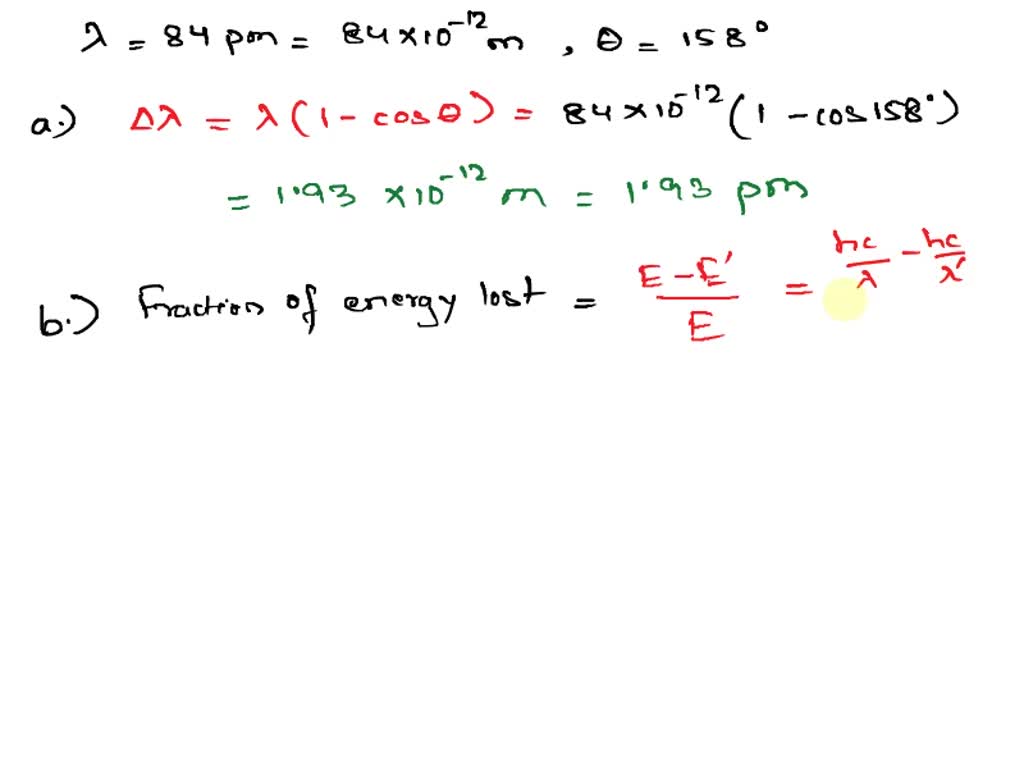 λ = 84 pm = 84×10⁻¹² m , θ = 158°
a.) Δλ = λ(1 - cosθ) = 84×10⁻¹² (1 - cos158°)
= 1.93 ×10⁻¹² m = 1.93 pm
b.) Fraction of energy lost = (E - E')/E = hc/λ - hc/λ'